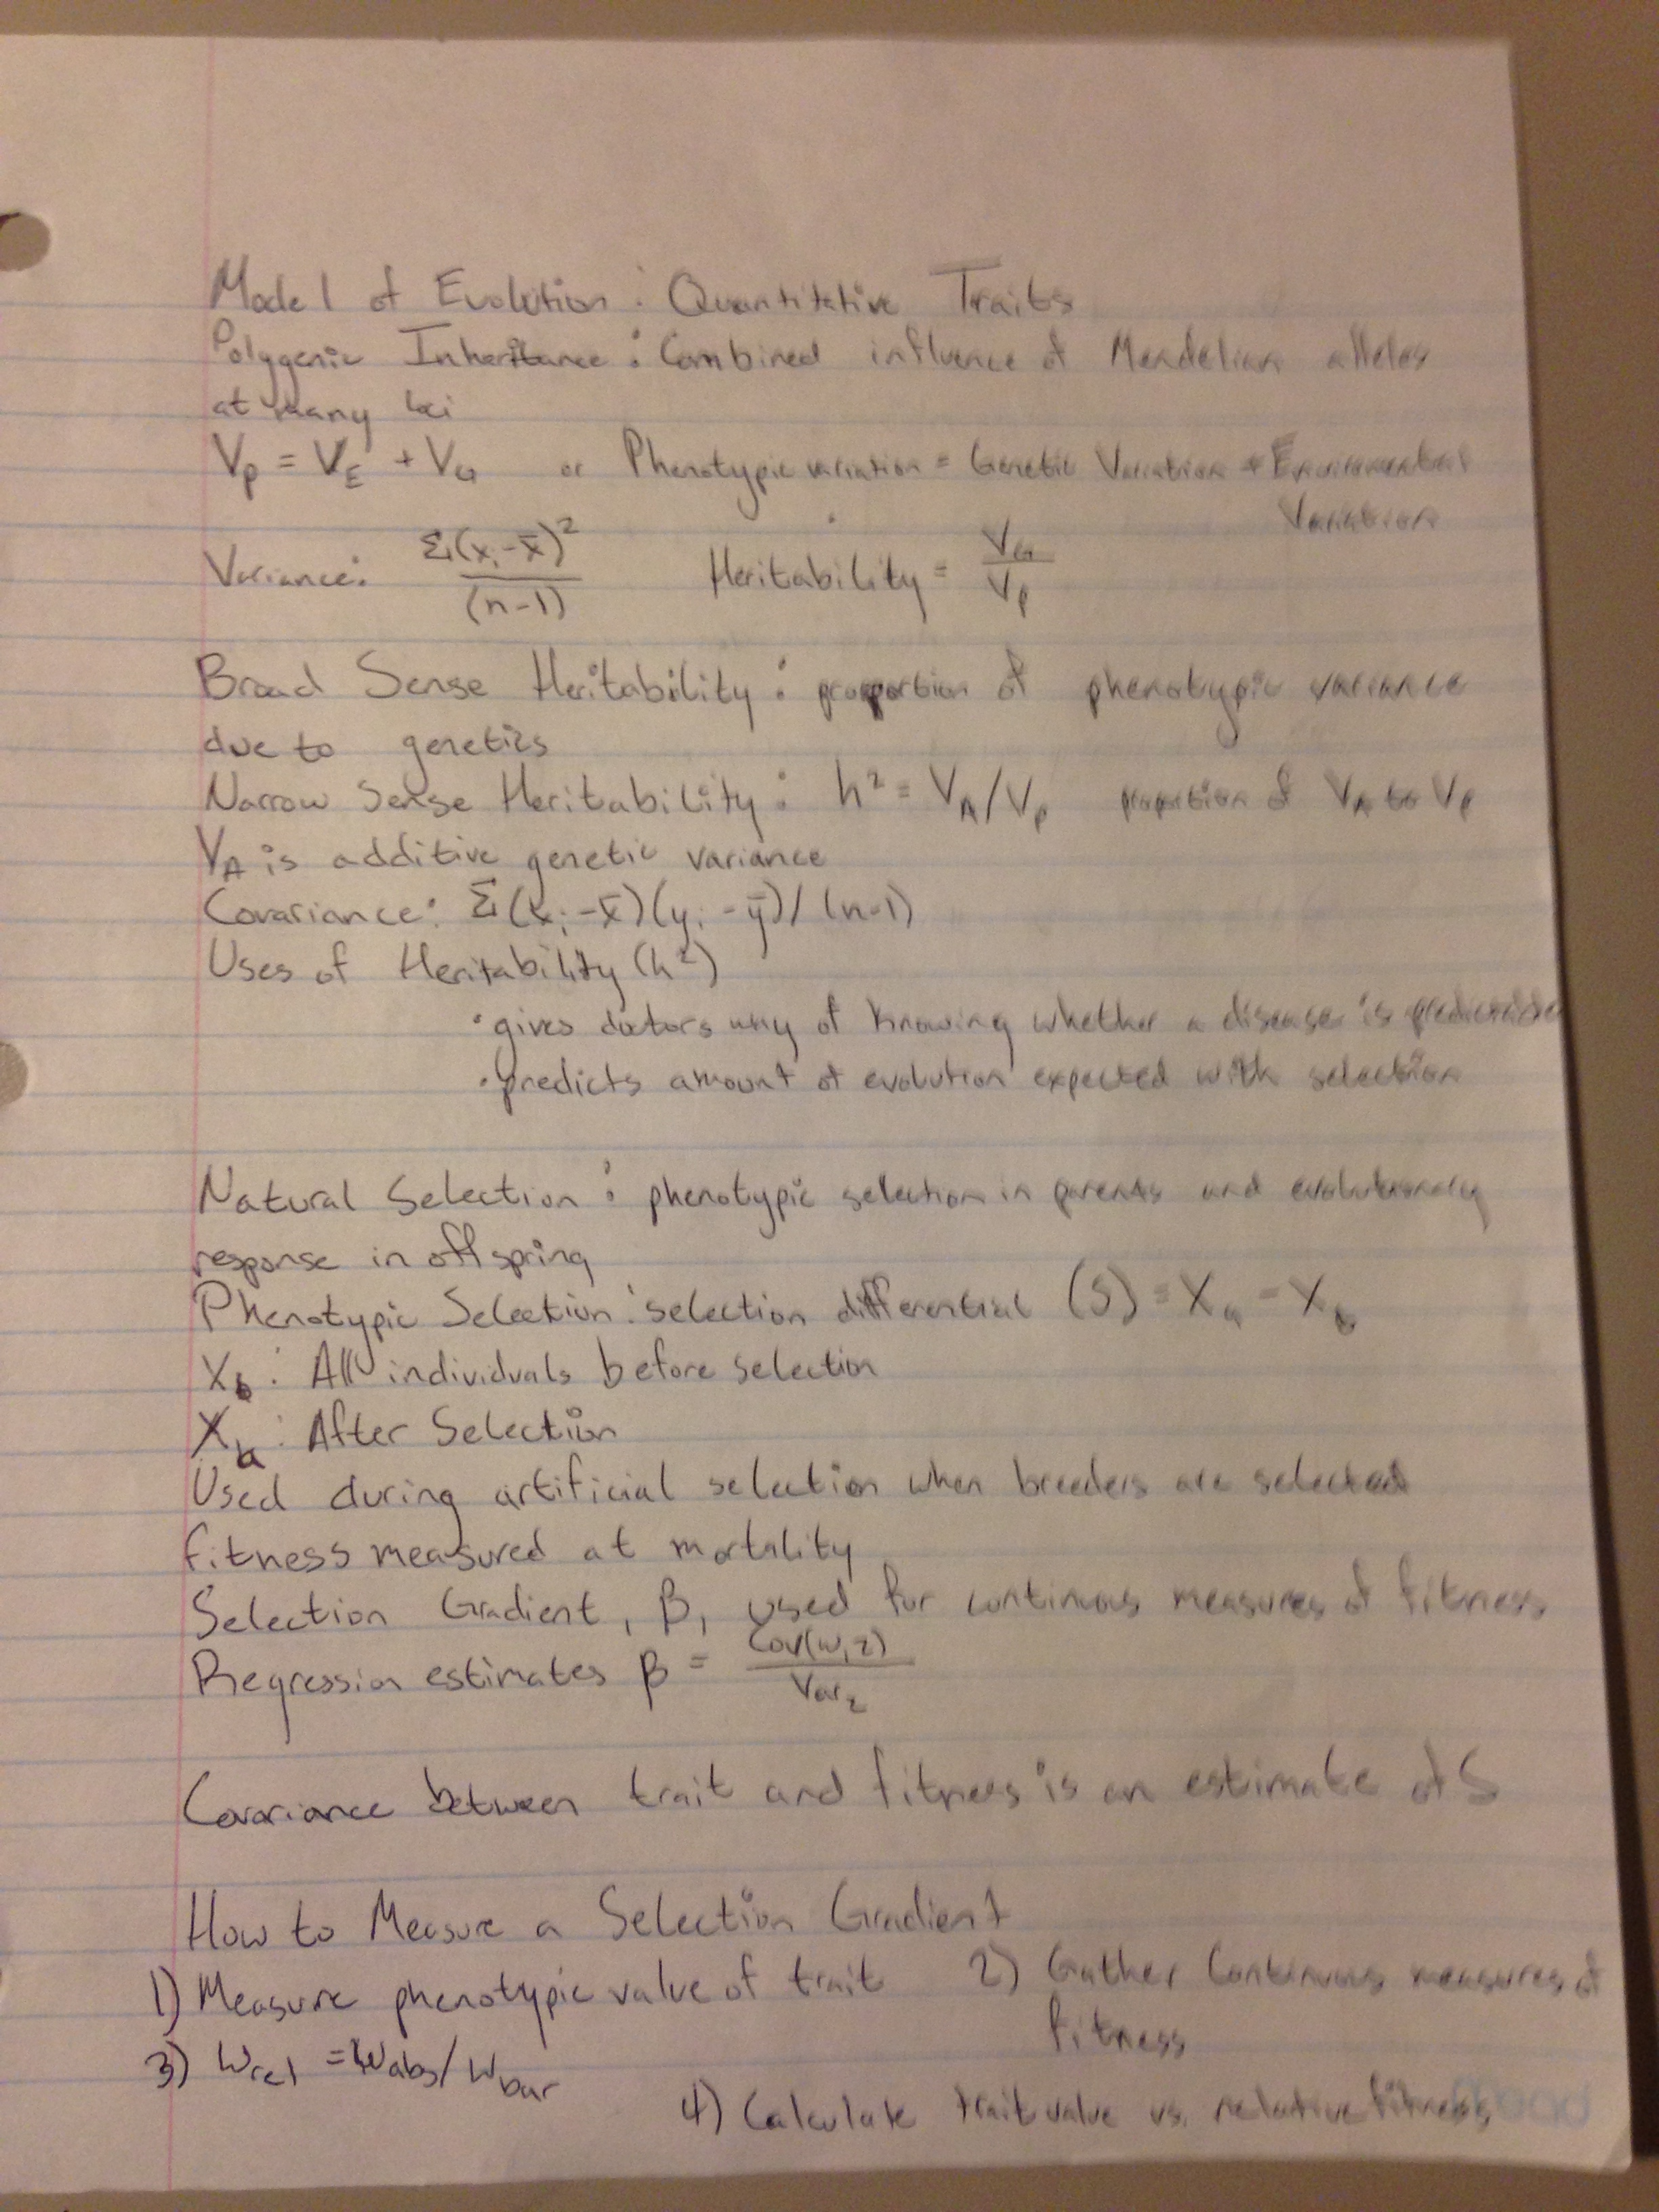 Model of Evolution : Quantitative Traits
Polygenic Inheritance : Combined influence of Mendelian alleles
at many loci
Vp = VE + VG or Phenotypic variation = Genetic Variation + Enviromental
Variation
Variance: Σ(xi-x̄)²/(n-1) Heritability = VG/Vp
Broad Sense Heritability : proportion of phenotypic variance
due to genetics
Narrow Sense Heritability : h² = VA/Vp proportion of VA to Vp
VA is additive genetic variance
Covariance: Σ(xi-x̄)(yi-ȳ)/(n-1)
Uses of Heritability (h²)
· gives doctors way of knowing whether a disease is
· predicts amount of evolution expected with selection
Natural Selection : phenotypic selection in parents and evolutionary
response in offspring
Phenotypic Selection : selection differential (S) = Xa - Xb
Xb : All individuals before selection
Xa : After Selection
Used during artificial selection when breeders are selected
fitness measured at mortality
Selection Gradient, β, used for continuous measures of fitness
Regression estimates β = Cov(w,z)/Varz
Covariance between trait and fitness is an estimate of S
How to Measure a Selection Gradient
1) Measure phenotypic value of trait 2) Gather Continuous measures of
fitness
3) Wrel = Wabs/Wbar
4) Calculate trait value vs. relative fitness